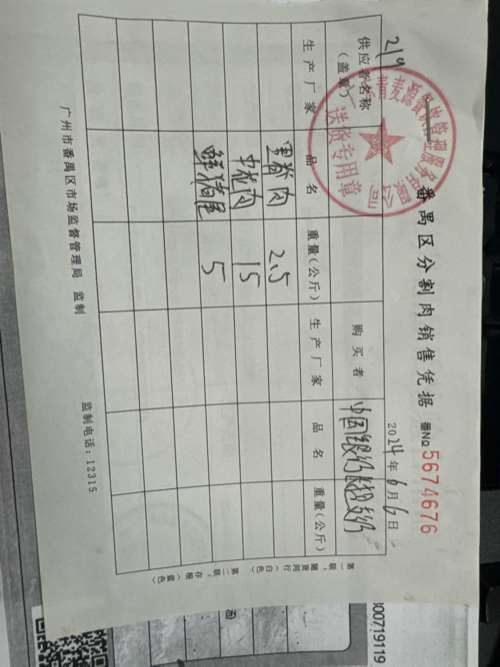 番禺区分割肉销售凭据 番№ 5674676
219
2024年6月6日
供应者名称
(盖章)
送货专用章
购买者 中国银行
生产厂家 品名 重量(公斤) 生产厂家 品名 重量(公斤)
里脊肉 2.5
中龙肉 15
鲜猪 5
第一联:随货同行(白色)
第二联:存根(蓝色)
广州市番禺区市场监督管理局 监制 监制电话:12315
3000719119